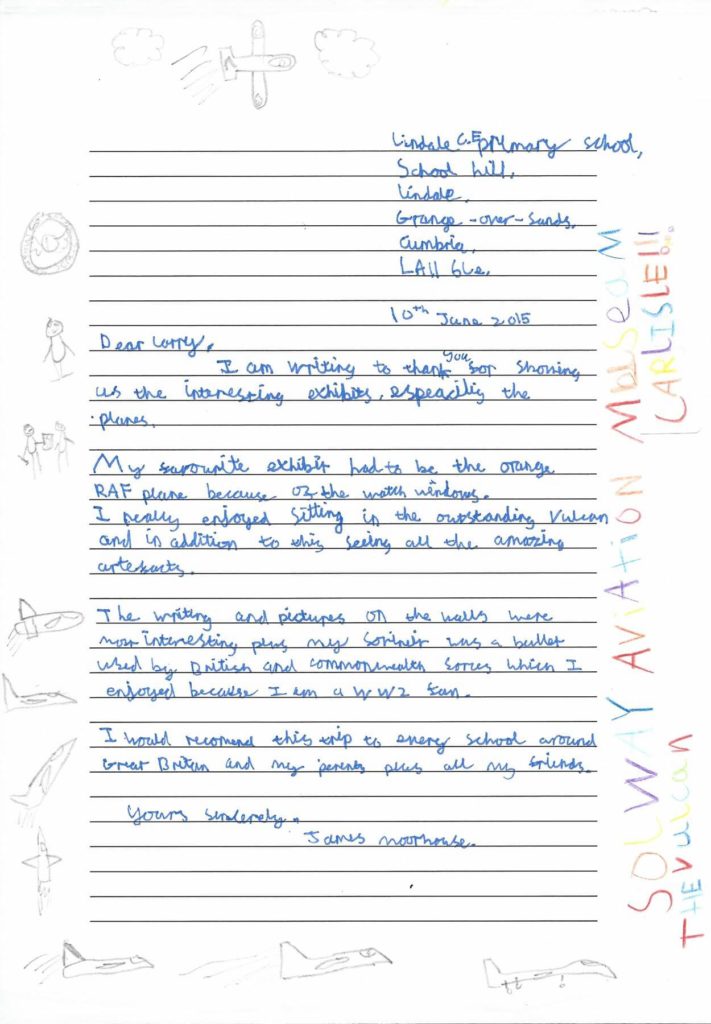 Lindale C.E primary school,
School hill,
Lindale,
Grange-over-Sands,
Cumbria,
LA11 6LE.
10th June 2015
Dear Larry,
I am writing to thank you for showing
us the interesting exhibits, espeacilly the
planes.
My favourite exhibit had to be the orange
RAF plane because of the watch windows.
I really enjoyed sitting in the outstanding Vulcan
and in addition to this seeing all the amazing
artefacts.
The writing and pictures on the walls were
most interesting plus my sovinir was a bullet
used by British and commonwealth forces which I
enjoyed because I am a WW2 fan.
I would recomend this trip to every school around
Great Britan and my parents plus all my friends.
Yours sincerely.
James Moorhouse.
SOLWAY AviATiON MuSeuM
CARLISLE!!!
THE Vulcan